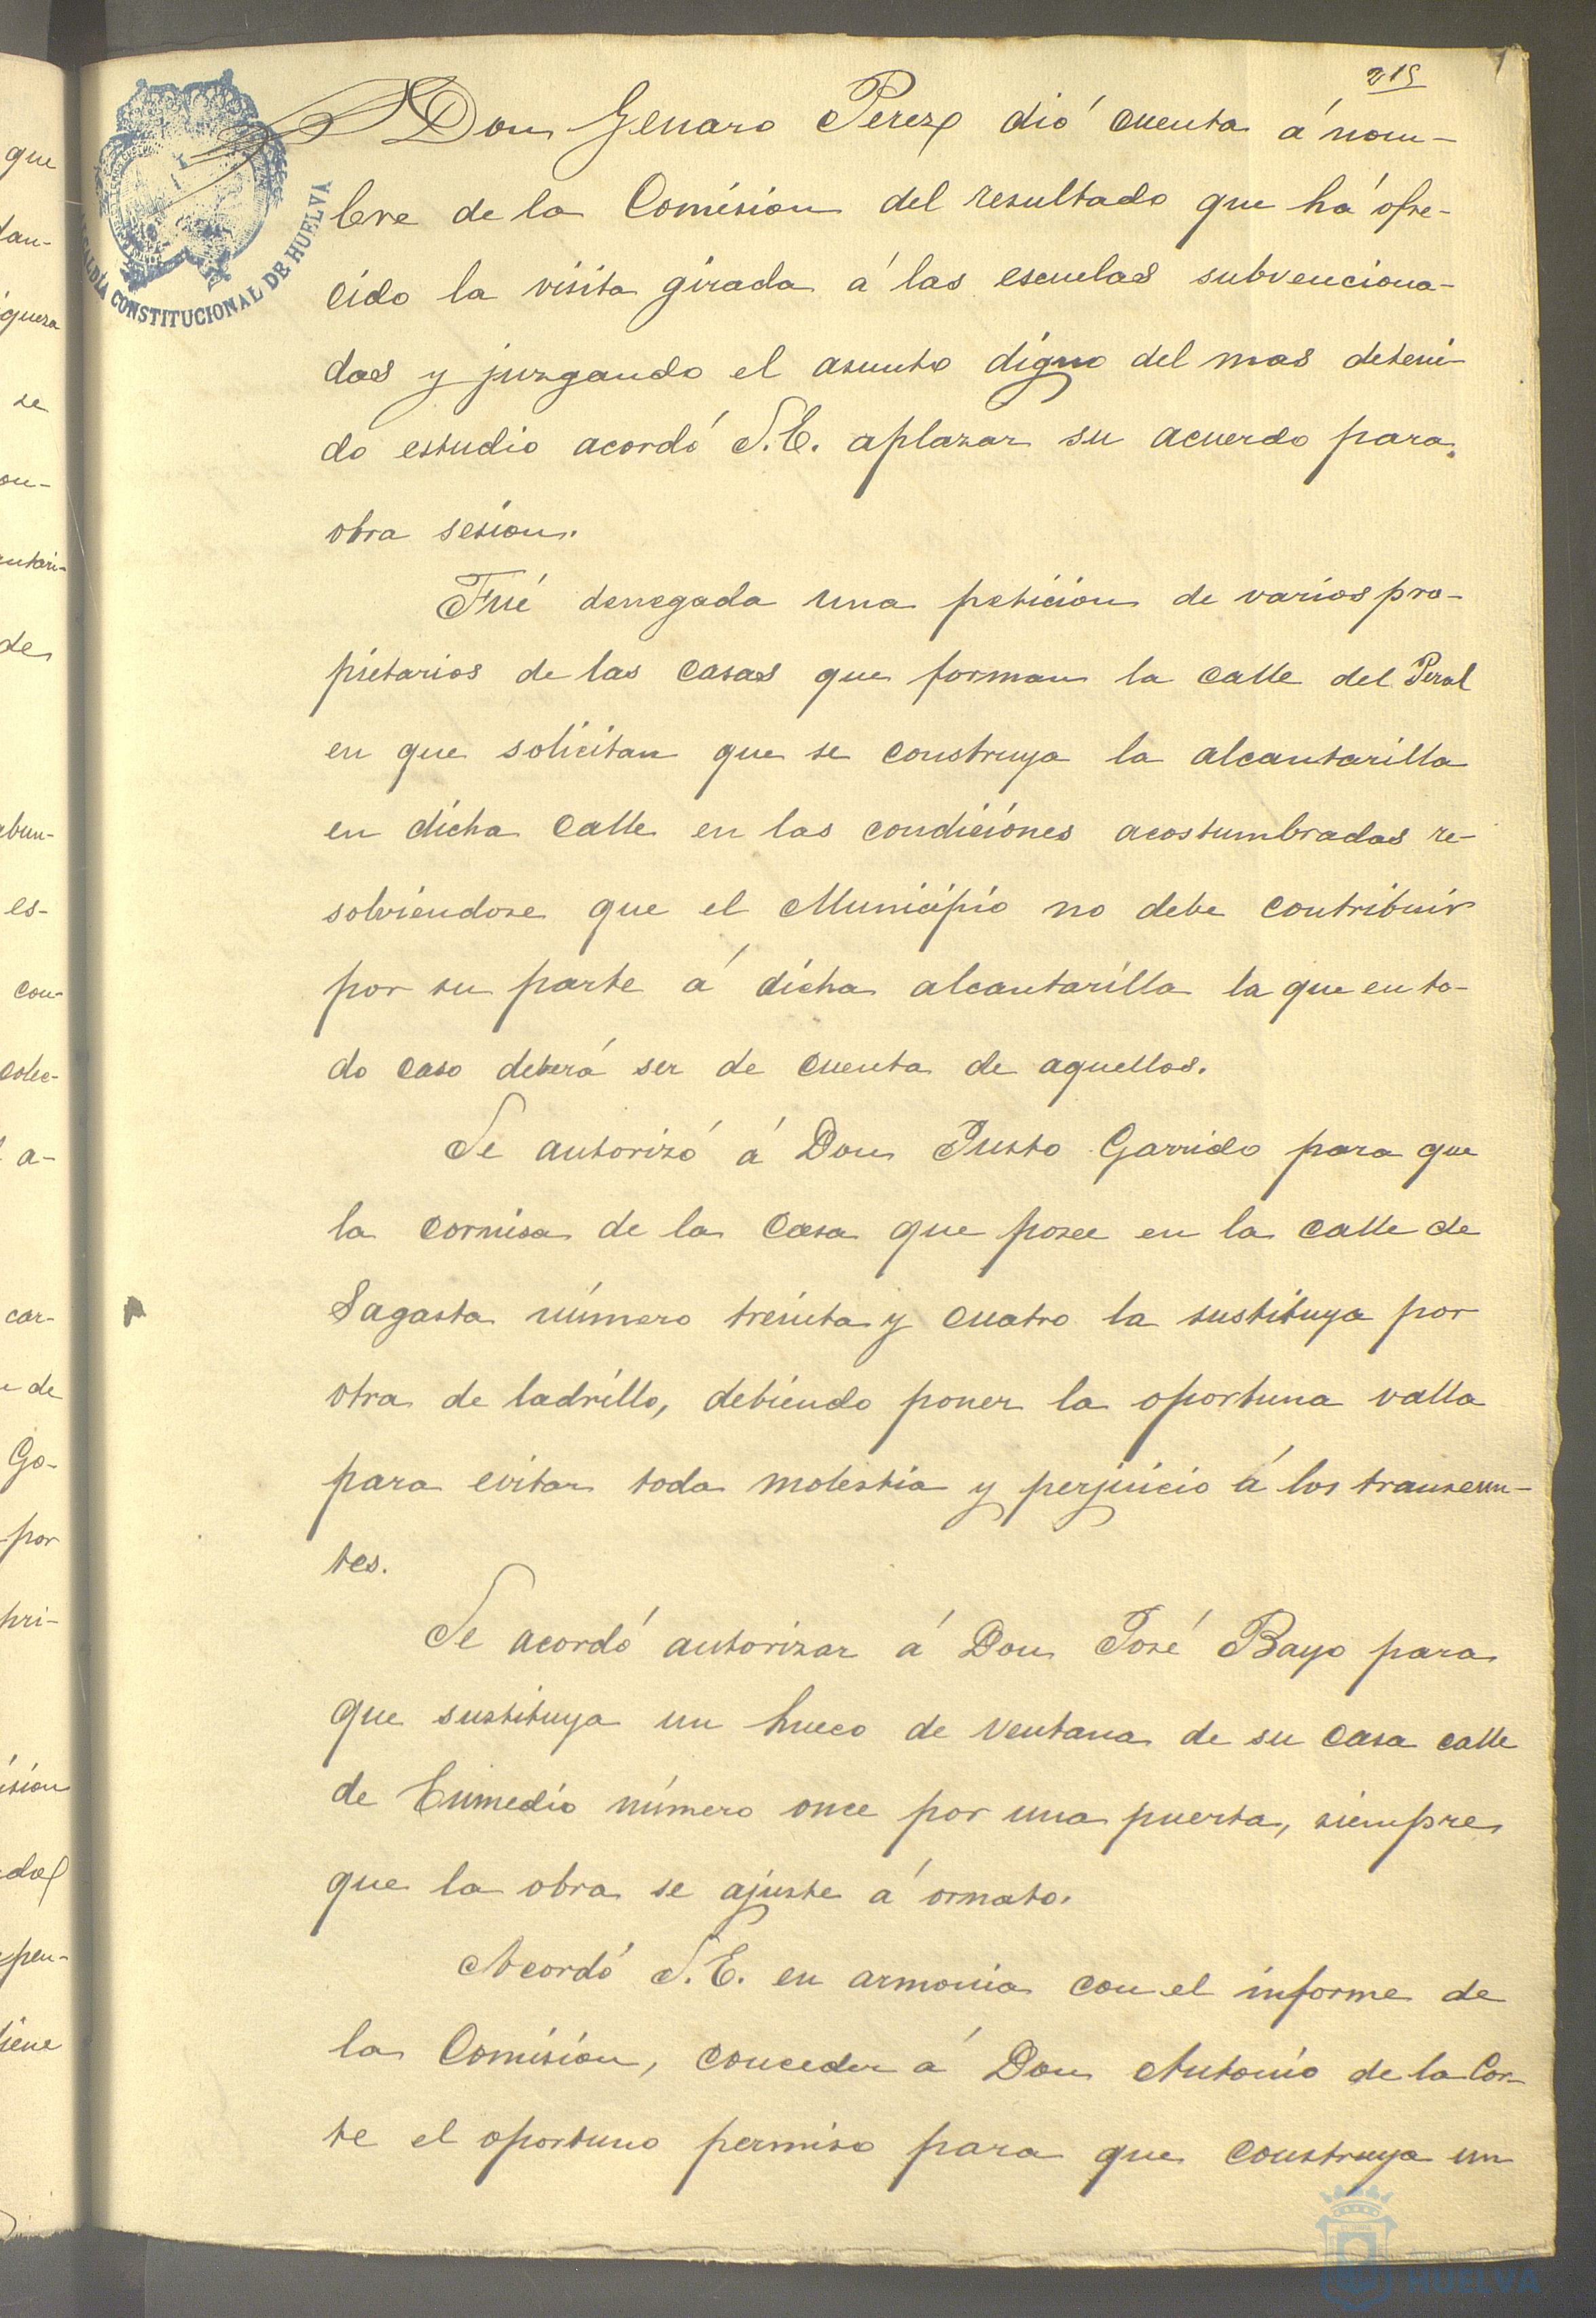 215
Don Genaro Perez dió cuenta á nom-
bre de la Comision del resultado que há ofre-
cido la visita girada á las escuelas subvenciona-
das y juzgando el asunto digno del mas deteni-
do estudio acordó S.E. aplazar su acuerdo para
otra sesion.
Fué denegada una peticion de varios pro-
pietarios de las casas que forman la calle del Peral
en que solicitan que se construya la alcantarilla
en dicha calle en las condiciones acostumbradas re-
solviendose que el Municipio no debe contribuir
por su parte á dicha alcantarilla la que en to-
do caso deberá ser de cuenta de aquellos.
Se autorizó á Don Justo Garrido para que
la cornisa de la casa que posee en la calle de
Sagasta número treinta y cuatro la sustituya por
otra de ladrillo, debiendo poner la oportuna valla
para evitar toda molestia y perjuicio á los transeun-
tes.
Se acordó autorizar á Don José Bayo para
que sustituya un hueco de ventana de su casa calle
de Enmedio número once por una puerta, siempre
que la obra se ajuste á ornato.
Acordó S.E. en armonia con el informe de
la Comision, conceder á Don Antonio de la Cor-
te el oportuno permiso para que construya un
ALCALDÍA CONSTITUCIONAL DE HUELVA
HUELVA
que
guera
se
de
es-
con-
a-
car-
de
Go-
por